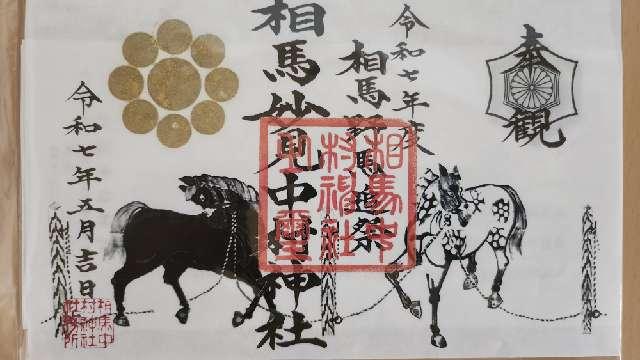 奉観
令和七年度
相馬野馬追祭
相馬妙見中村神社
相馬中
村神社
令和七年五月吉日
相馬中
村神社
社務所